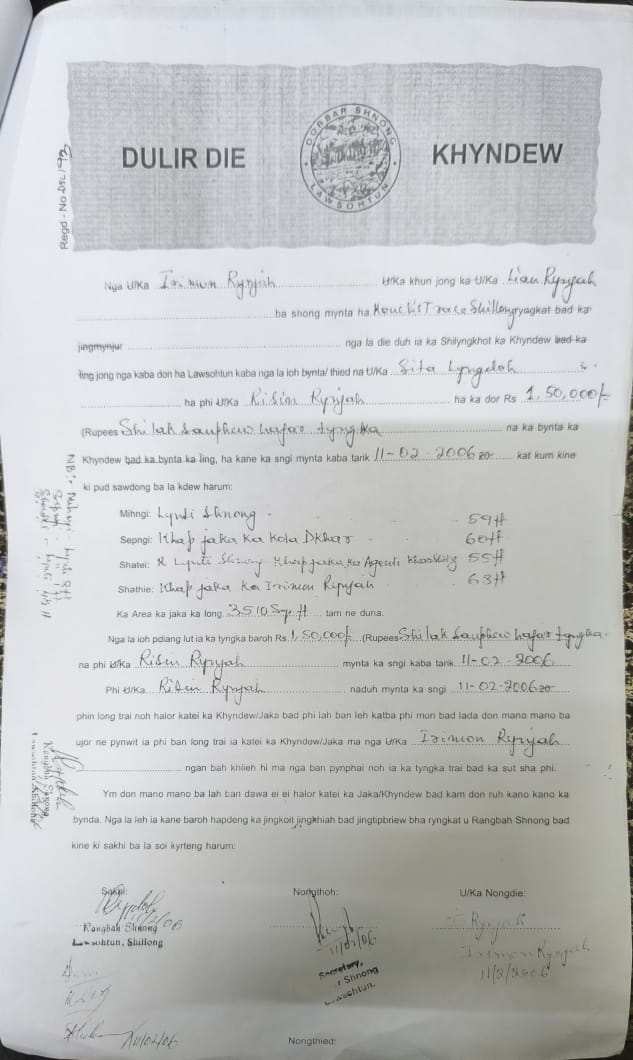 DULIR DIE KHYNDEW
DORBAR SHNONG
LAWSOHTUN
Regd - No
Nga U/Ka Irimon Rynjah U/Ka khun jong ka U/Ka Lian Rynjah
ba shong mynta ha Shillong ryngkat bad ka
jingmynjur nga la die duh ia ka Shilyngkhot ka Khyndew bad ka
ling jong nga kaba don ha Lawsohtun kaba nga la ioh bynta/ thied na U/Ka Sita Lyngdoh
ha phi U/Ka Risin Rynjah ha ka dor Rs 1,50,000/-
(Rupees Shilak sanphew hajar tyngka na ka bynta ka
Khyndew bad ka bynta ka ling, ha kane ka sngi mynta kaba tarik 11-02-2006 20 kat kum kine
ki pud sawdong ba la kdew harum:
Mihngi: Lynti Shnong - 59ft
Sepngi: Khap jaka Ka Kola Dkhar - 60ft
Shatei: Lynti Shnong Khap jaka Ka 55ft
Shathie: Khap jaka Ka Irimon Rynjah - 63ft
Ka Area ka jaka ka long 3510 Sq.ft tam ne duna.
Nga la ioh pdiang lut ia ka tyngka baroh Rs 1,50,000/- (Rupees Shilak sanphew hajar tyngka
na phi U/Ka Risin Rynjah mynta ka sngi kaba tarik 11-02-2006
Phi U/Ka Risin Rynjah naduh mynta ka sngi 11-02-2006 20
phin long trai noh halor katei ka Khyndew/Jaka bad phi lah ban leh katba phi mon bad lada don mano mano ba
ujor ne pynwit ia phi ban long trai ia katei ka Khyndew/Jaka ma nga U/Ka Irimon Rynjah
ngan bah khlieh hi ma nga ban pynphai noh ia ka tyngka trai bad ka sut sha phi.
Ym don mano mano ba lah ban dawa ei ei halor katei ka Jaka/Khyndew bad kam don ruh kano kano ka
bynda. Nga la leh ia kane baroh hapdeng ka jingkoit jingkhiah bad jingtipbriew bha ryngkat u Rangbah Shnong bad
kine ki sakhi ba la soi kyrteng harum:
Rangbah Shnong
Lawsohtun, Shillong
Sakhi:
Rangbah Shnong
Lawsohtun, Shillong
Nongthoh:
11/02/06
Secretary,
Shnong
Lawsohtun.
U/Ka Nongdie:
I Rynjah
Irimon Rynjah
11/2/2006
11/02/06
Nongthied: